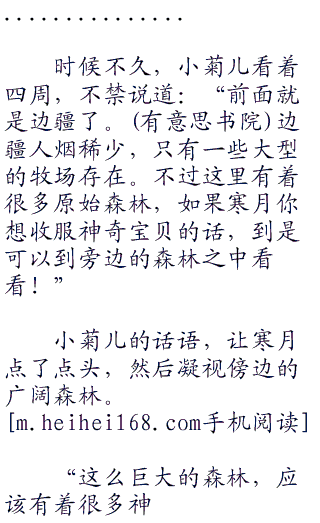 ...............
时候不久，小菊儿看着
四周，不禁说道：“前面就
是边疆了。(有意思书院)边
疆人烟稀少，只有一些大型
的牧场存在。不过这里有着
很多原始森林，如果寒月你
想收服神奇宝贝的话，到是
可以到旁边的森林之中看
看！”
小菊儿的话语，让寒月
点了点头，然后凝视傍边的
广阔森林。
[m.heihei168.com手机阅读]
“这么巨大的森林，应
该有着很多神